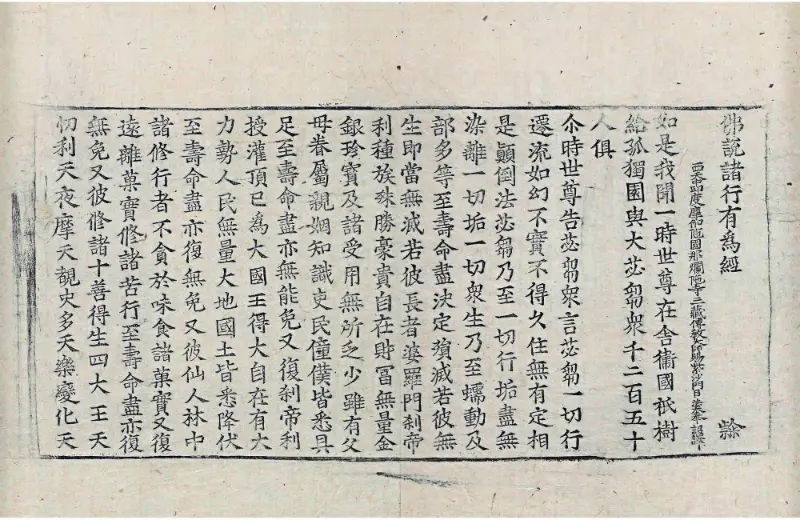 佛說諸行有爲經
西天中印度摩伽陁國那爛陁寺三藏傳教大師賜紫沙門臣法天奉 詔譯
如是我聞一時世尊在舍衞國祇樹
給孤獨園與大苾芻衆千二百五十
人俱
尒時世尊告苾芻衆言苾芻一切行
遷流如幻不實不得久住無有定相
是顚倒法苾芻乃至一切行垢盡無
染離一切垢一切衆生乃至蠕動及
部多等至壽命盡決定殞滅若彼無
生即當無滅若彼長者婆羅門刹帝
利種族殊勝豪貴自在財冨無量金
銀珍寶及諸受用無所乏少雖有父
母眷屬親姻知識吏民僮僕皆悉具
足至壽命盡亦無能免又復刹帝利
授灌頂已爲大國王得大自在有大
力勢人民無量大地國土皆悉降伏
至壽命盡亦復無免又彼仙人林中
諸修行者不貪於味食諸菓實又復
遠離菓實修諸苦行至壽命盡亦復
無免又彼修諸十善得生四大王天
忉利天夜摩天覩史多天樂變化天